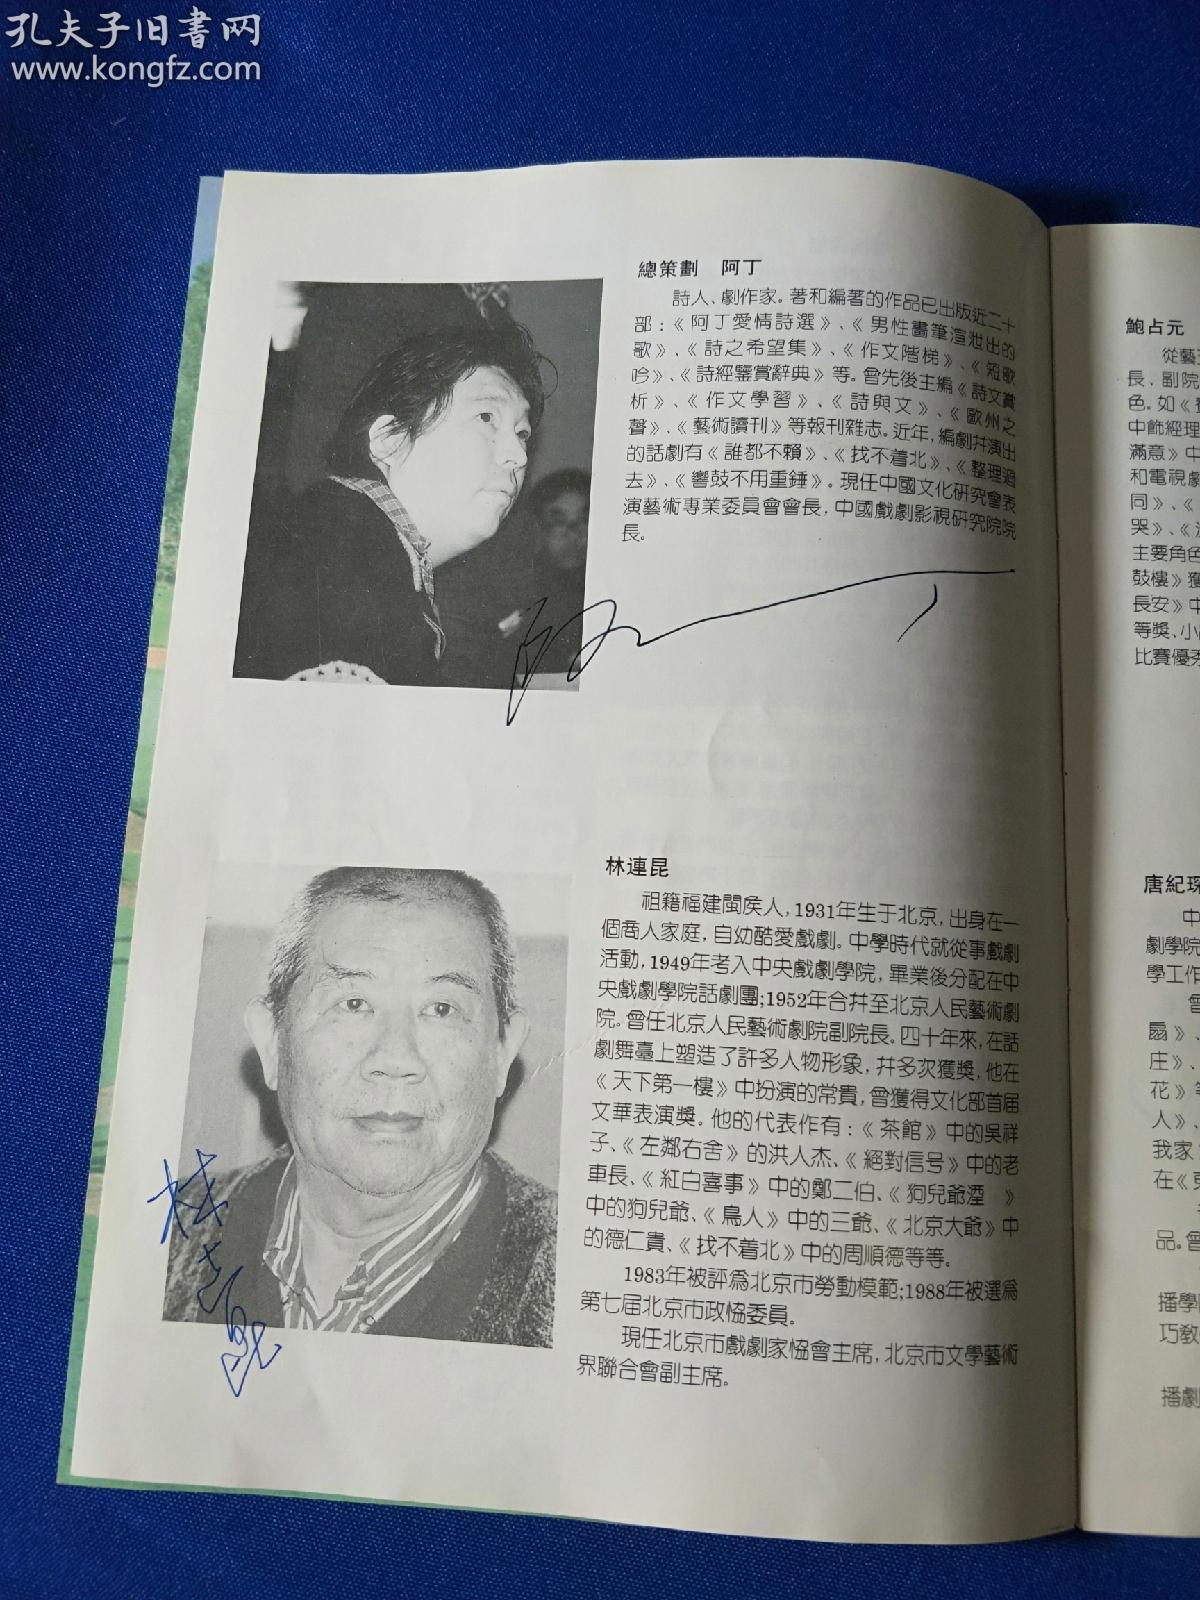 孔夫子旧書网
www.kongfz.com
總策劃 阿丁
詩人、劇作家。著和編著的作品已出版近二十
部：《阿丁愛情詩選》、《男性畫筆渲泄出的
歌》、《詩之希望集》、《作文階梯》、《短歌
吟》、《詩經鑒賞辭典》等。曾先後主編《詩文賞
析》、《作文學習》、《詩與文》、《歐州之
聲》、《藝術讀刊》等報刊雜志。近年，編劇幷演出
的話劇有《誰都不賴》、《找不着北》、《整理過
去》、《響鼓不用重錘》。現任中國文化研究會表
演藝術專業委員會會長，中國戲劇影視研究院院
長。
林連昆
祖籍福建閩侯人，1931年生于北京，出身在一
個商人家庭，自幼酷愛戲劇。中學時代就從事戲劇
活動，1949年考入中央戲劇學院，畢業後分配在中
央戲劇學院話劇團;1952年合幷至北京人民藝術劇
院。曾任北京人民藝術劇院副院長。四十年來，在話
劇舞臺上塑造了許多人物形象，幷多次獲獎，他在
《天下第一樓》中扮演的常貴，曾獲得文化部首届
文華表演獎。他的代表作有：《茶館》中的吳祥
子、《左鄰右舍》的洪人杰、《絕對信号》中的老
車長、《紅白喜事》中的鄭二伯、《狗兒爺湮 》
中的狗兒爺、《鳥人》中的三爺、《北京大爺》中
的德仁貴、《找不着北》中的周順德等等。
1983年被評爲北京市勞動模範;1988年被選爲
第七届北京市政協委員。
現任北京市戲劇家協會主席，北京市文學藝術
界聯合會副主席。
阿丁
林连昆
鮑占元
從藝
長、副院
色。如《
中飾經理
滿意》中
和電視劇
同》、《
哭》、《
主要角色
鼓樓》獲
長安》中
等獎、小
比賽優秀
唐紀琛
中
劇學院
學工作
曾
扇》、
庄》、
花》等
人》、
我家
在《
品。曾
播學
巧教
播劇